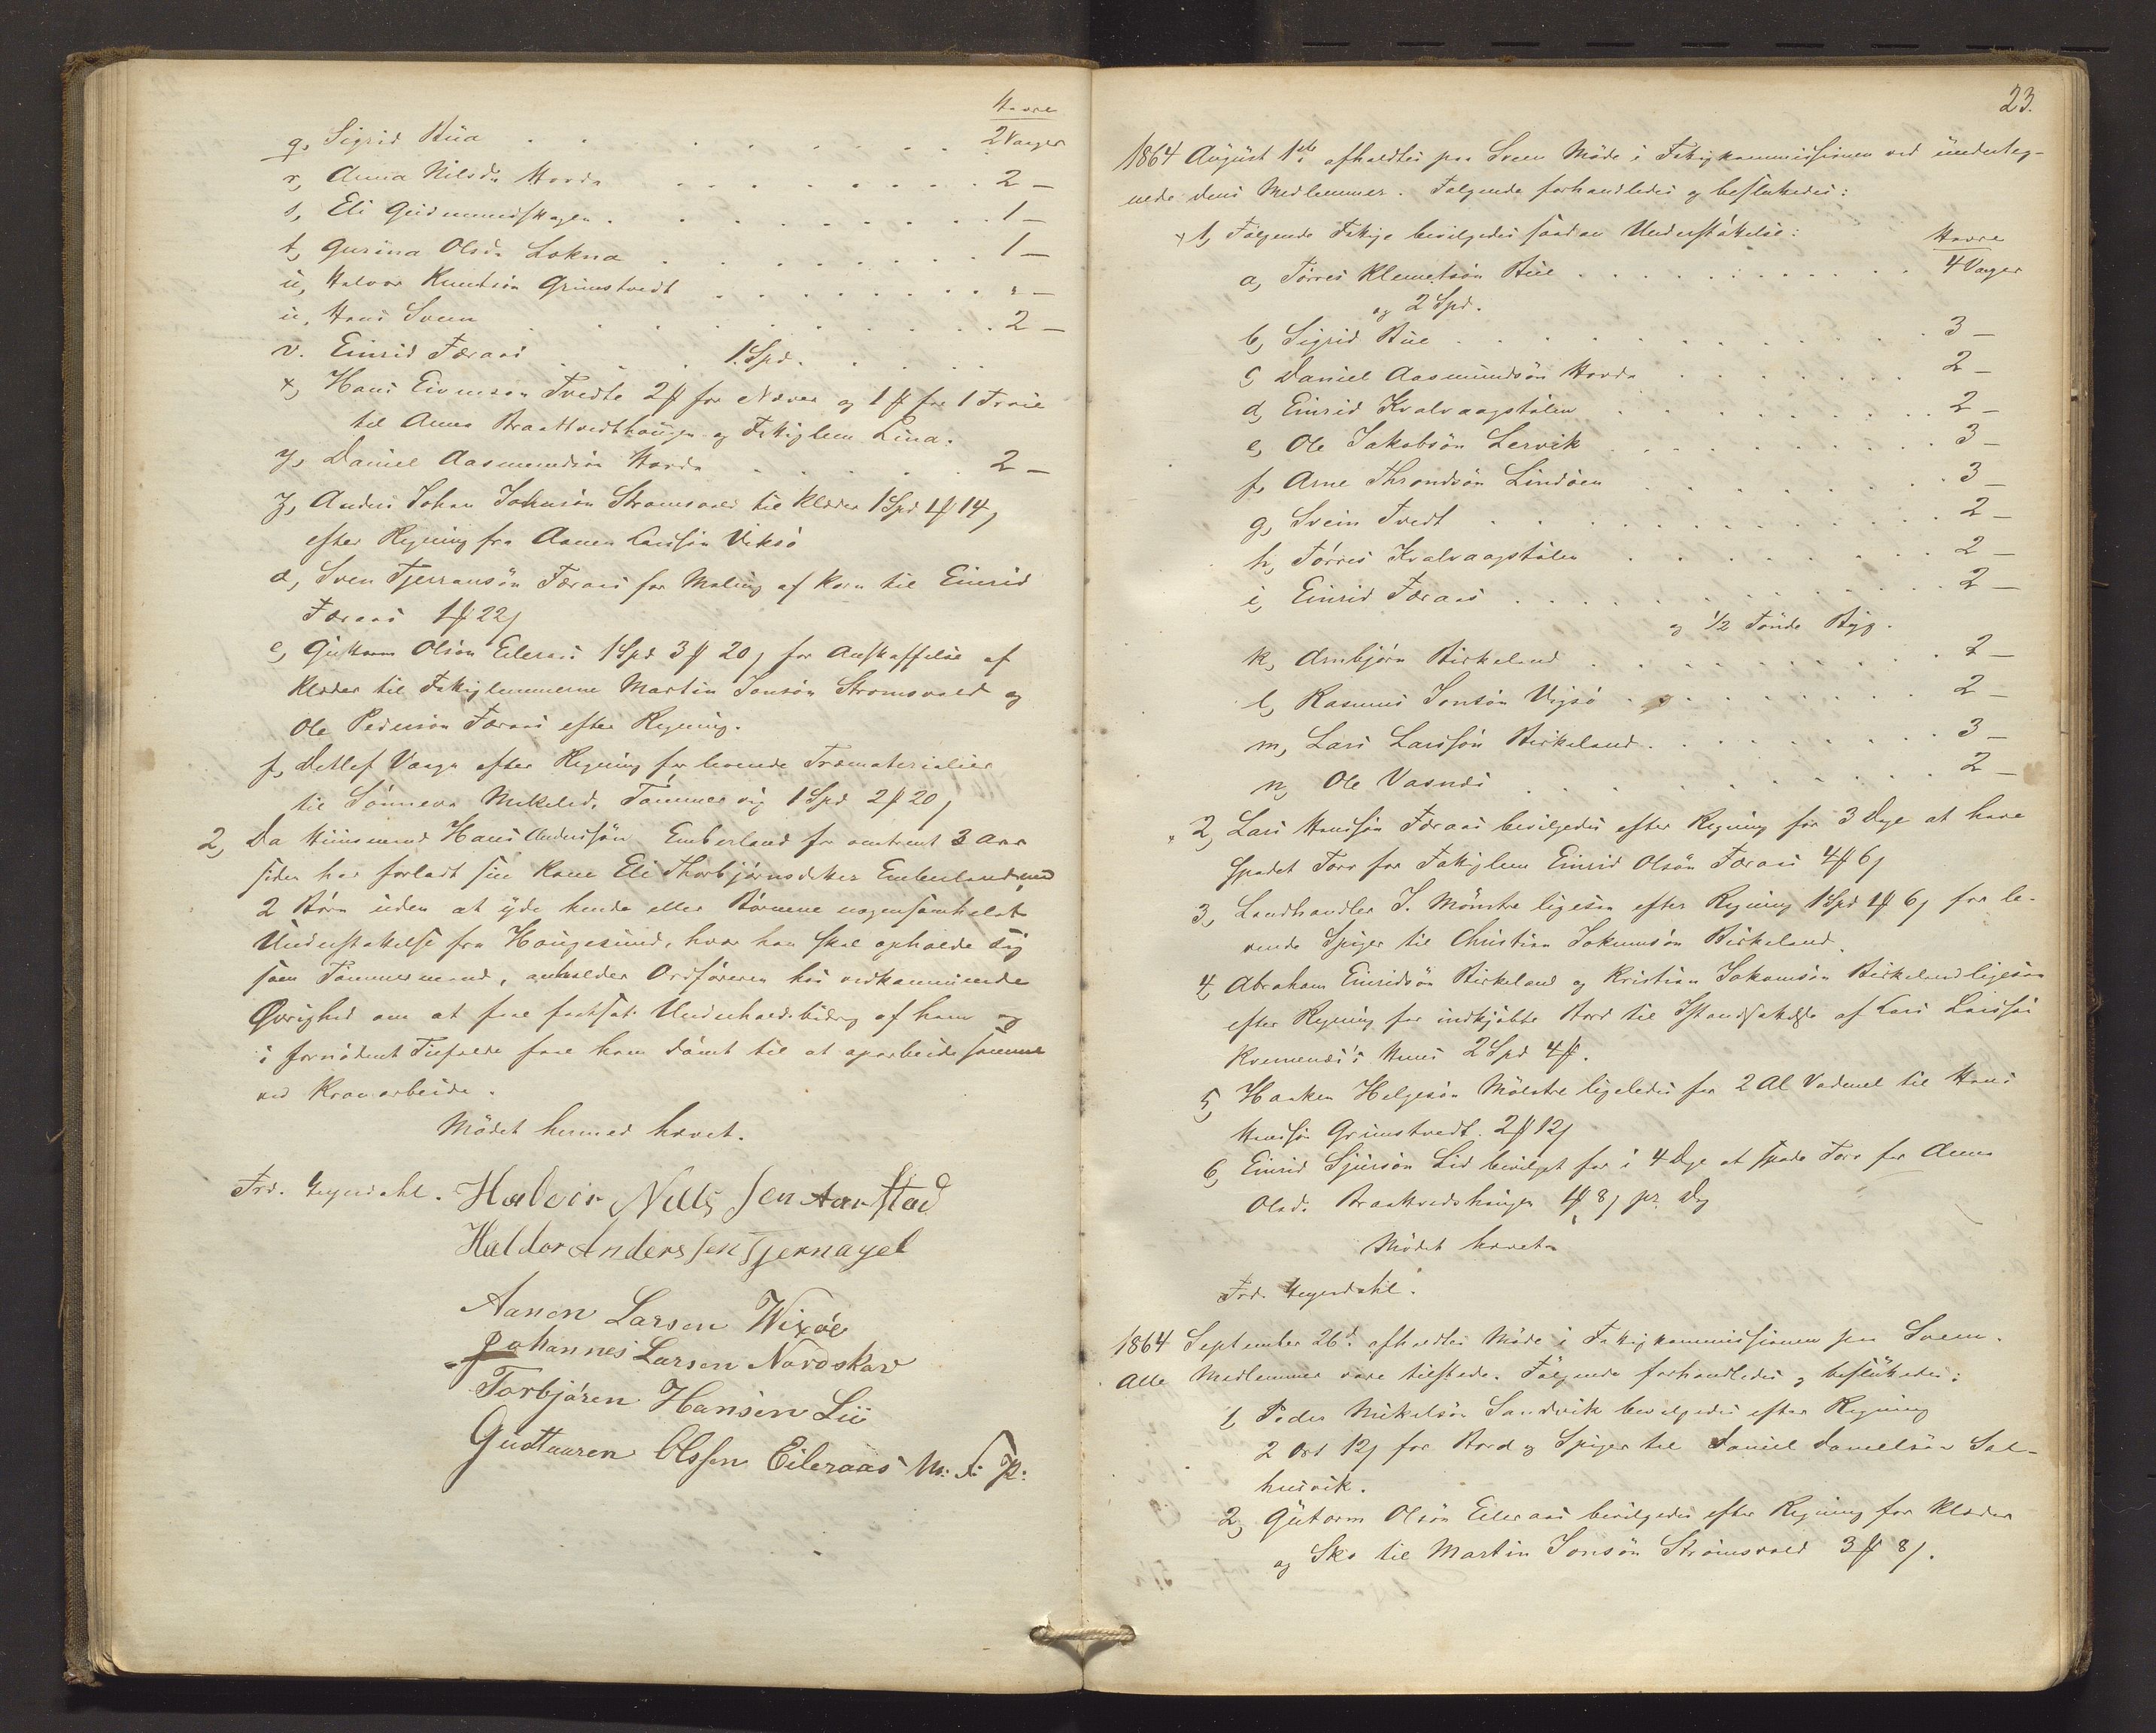 Havre
q, Sigrid Büa . . . . . . . . . 2 Vaager
r, Anna Nilsdr Hovda . . . . . . . . 2 —
s, Eli Gudmundshagen . . . . . . . . 1 —
t, Gurina Olsdr Lokna . . . . . . . . 1 —
u, Halvor Knudsön Grimstvedt . . . . . . . . " —
ü, Hans Sveen . . . . . . . . 2 —
v. Einrid Færaas . . . 1 Spd. . . . .
x, Hans Eivensøn Tvedte 2 # for Næver og 1 # for 1 Troie
til Anna Braattvedthaugen og Fattiglem Lina.
y, Daniel Aasmundsön Hovda . . . . . . 2 —
z, Anders Johan Johnsön Strømsvold til Klæder 1 Spd 1 # 14 ſ
efter Regning fra Aanen Larssön Viksö
d, Sven Tjerransön Færaas for Maling af Korn til Einrid
Færaas 1 # 22 ſ
e, Guttorm Olsön Eileraas 1 Spd 3 # 20 ſ for Anskaffelse af
Klæder til Fattiglemmerne Martin Jonsön Strømsvold og
Ole Pedersön Færaas efter Regning.
f, Detlef Vaage efter Regning for leverede Træmaterialier
til Sönneva Mikelsd. Tömmervig 1 Spd 2 # 20 ſ
2, Da Huusmand Hans Andersön Emberland for omtrent 3 Aar
siden har forladt sin Kone Eli Thorbjörnsdatter Emberland med
2 Börn uden at yde hende eller Börnene nogensomhelst
Understøttelse fra Haugesund, hvor han skal opholde sig
som Tömmermand, anholder Ordföreren hos vedkommende
Øvrighed om at faae fastsat Underholdsbidrag af ham og
i fornödent Tilfælde faae ham dömt til at oparbeide samme
ved Kronarbeide.
Mödet hermed hævet.
Frd. Gegendahl. Halvir Nills sen Aarstad
Haldor Anderssen Tjernagel
Aanen Larsen Wixöe
Johannes Larsen Nordskov
Torbjören Hansen Lii
Gudtuuren Olssen Eileraas M: F: P:
23.
1864 August 1ste afholdtes paa Sveen Möde i Fattigkommissionen ved underteg-
nede dens Medlemmer. Følgende forhandledes og besluttedes:
1, Følgende Fattige bevilgedes saadan Understöttelse: Havre
a, Törres Klemetsön Büe . . . . . . . . . 4 Vaager
og 2 Spd.
b, Sigrid Büe . . . . . . . . . . 3 —
c, Daniel Aasmundsön Hovda . . . . . . . 2 —
d, Einrid Kvalvaagstölen . . . . . . . . 2 —
e, Ole Jakobsön Lervik . . . . . . . . 3 —
f, Arne Throndsön Lindöen . . . . . . . . 3 —
g, Svein Tvedt . . . . . . . . . . 2 —
h, Törres Kvalvaagstölen . . . . . . . . 2 —
i, Einrid Færaas . . . . . . . . . 2 —
og 1/2 Tönde Byg.
k, Arnbjörn Birkeland . . . . . . . . 2 —
l, Rasmus Jonsön Vigsö . . . . . . . . 2 —
m, Lars Larssön Birkeland . . . . . . . . 3 —
n, Ole Vasnæs . . . . . . . . 2 —
2, Lars Hanssön Færaas bevilgedes efter Regning for 3 Dage at have
spadet Torv for Fattiglem Einrid Olsön Færaas 4 # 6 ſ
3, Landhandler J. Mönstre ligesaa efter Regning 1 Spd 1 # 6 ſ for le-
verede Spiger til Christian Jokumsön Birkeland.
4, Abraham Einridsön Birkeland og Kristian Jokomsön Birkeland ligesaa
efter Regning for indkjöbte Bord til Istandsættelse af Lars Larssön
Kvernenæs's Huus 2 Spd 4 #.
5, Haaken Helgesön Mölstre ligeledes for 2 Al Vadmel til Hans
Hanssön Grimstvedt. 2 # 12 ſ
6, Einrid Sjursön Lid bevilget for i 4 Dage at spade Torv for Anna
Olsd. Braatvedshaugen 1 # 8 ſ pr. Dag
Mödet hævet.
Frd. Gegendahl.
1864 September 26d. afholdtes Möde i Fattigkommissionen paa Sveen.
Alle Medlemmer vare tilstede. Følgende forhandledes og besluttedes:
1, Peder Mikelsön Sandvik bevilgedes efter Regning
2 Ort 12 ſ for Bord og Spiger til Daniel Danielsön Sal-
husvik.
2, Gutorm Olsön Eileraas bevilgedes efter Regning for Klæder
og Sko til Martin Jonsön Strömsvold 3 # 8 ſ.